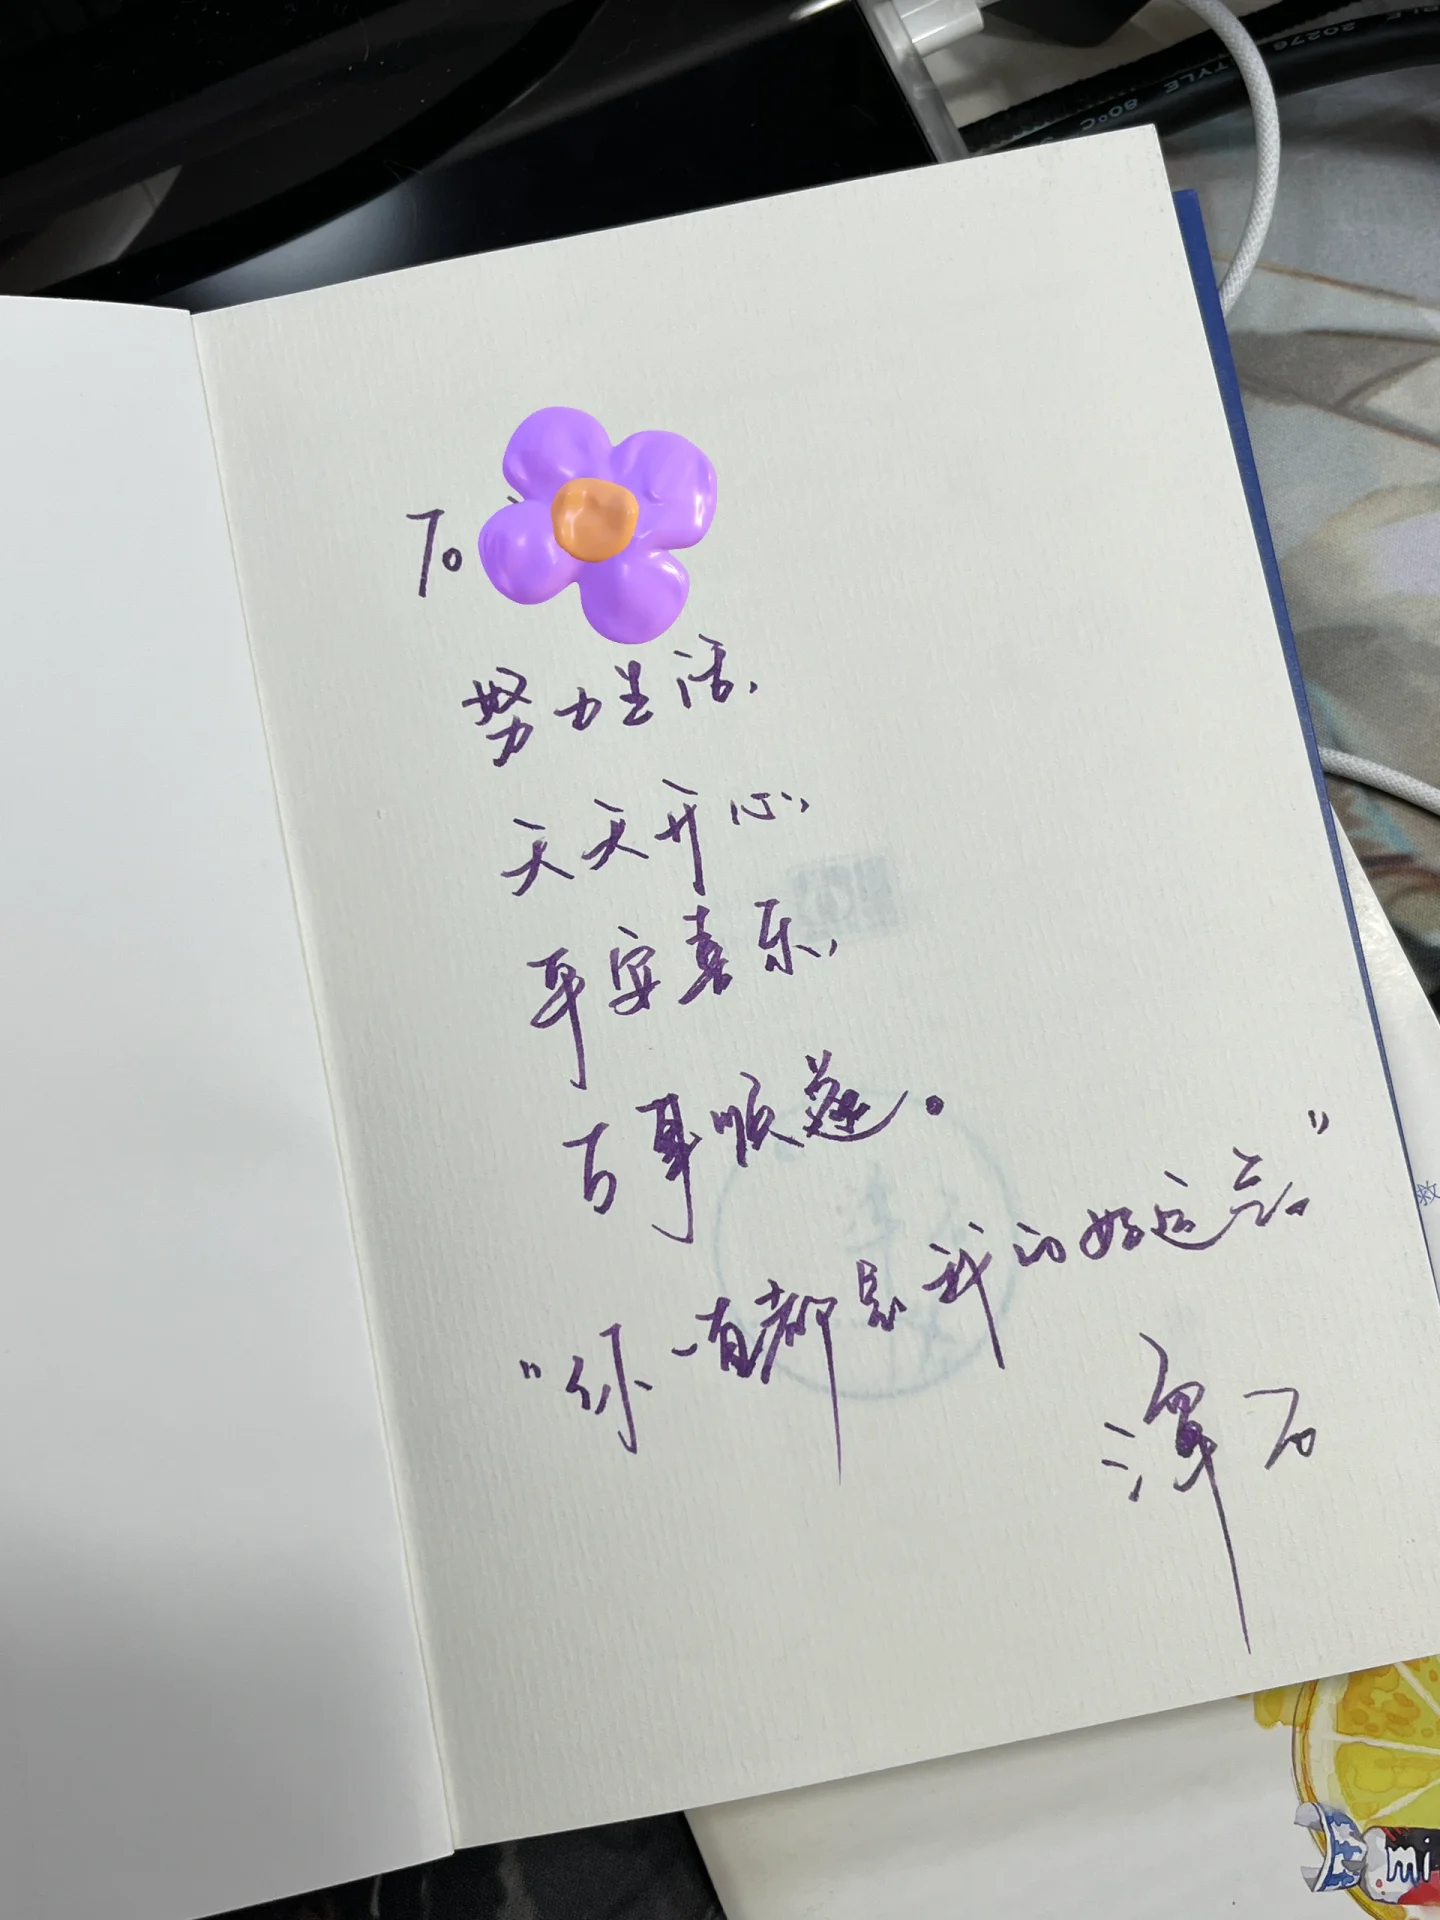 TYLE 20276
80°C
To
努力生活,
天天开心,
平安喜乐,
万事顺遂。
"你一直都是我的好运气。"
潭石
救
mi